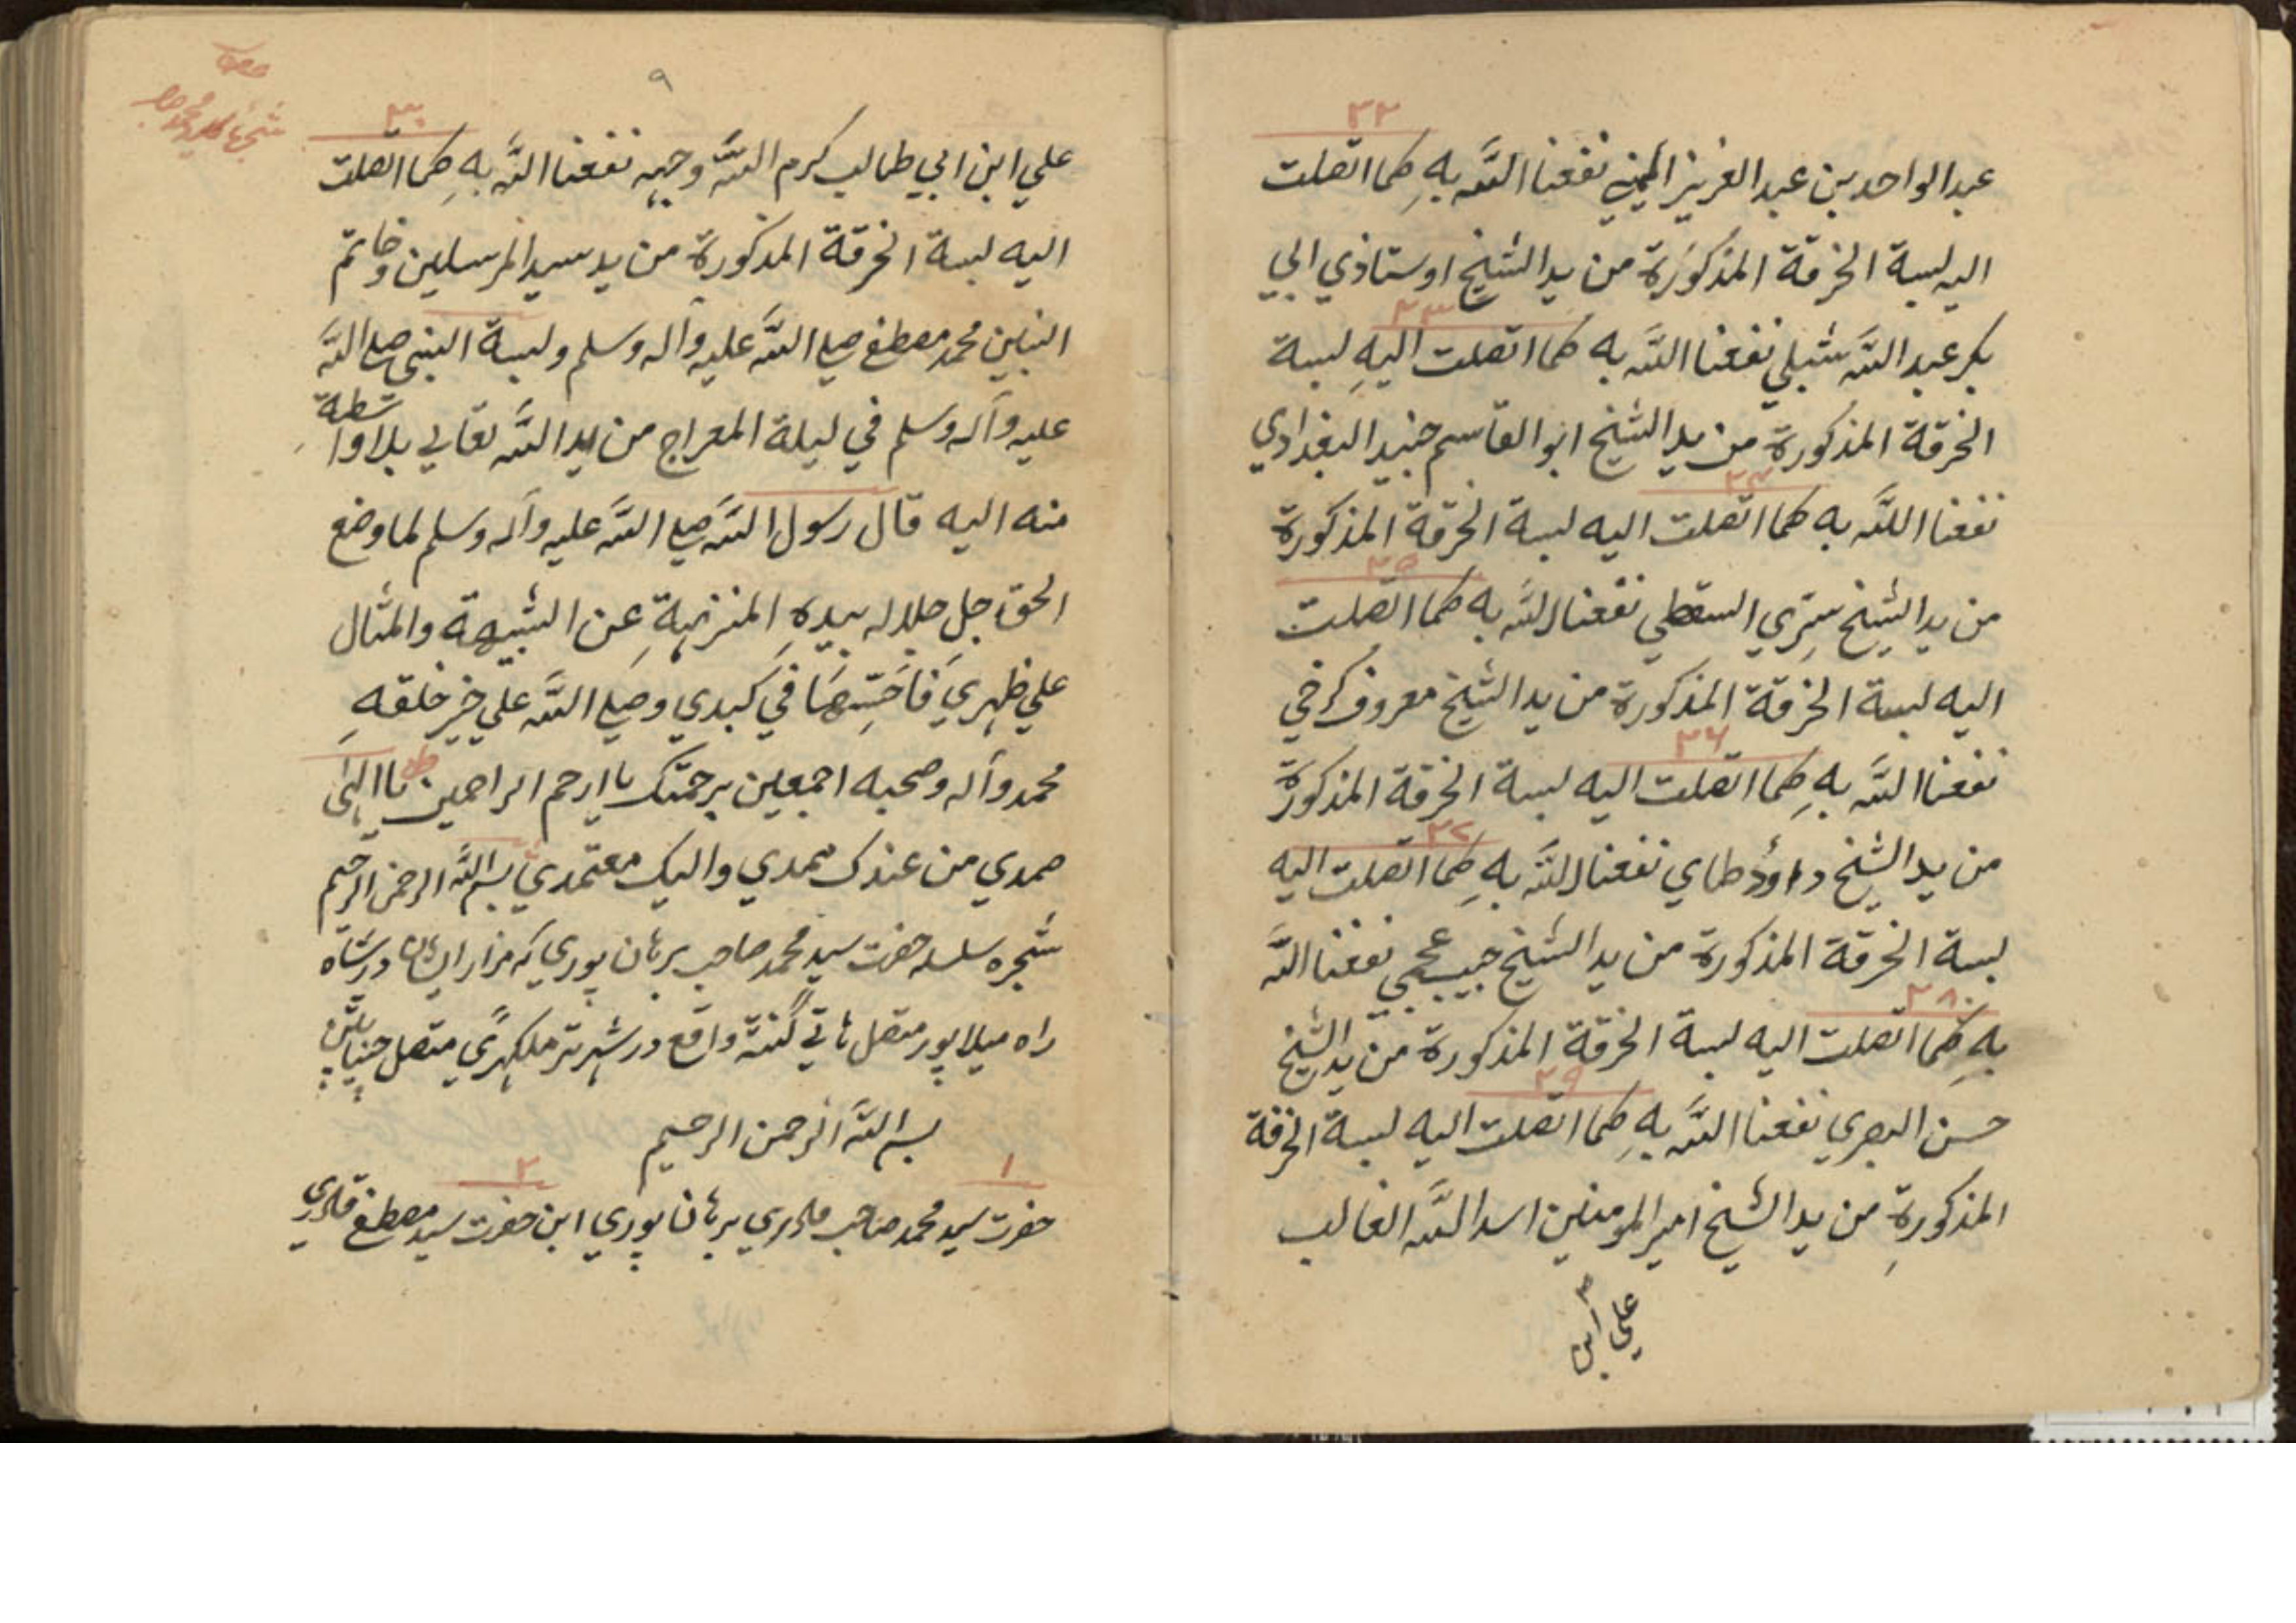 ٢٢
عبد الواحد بن عبد العزيز اليمني نفعنا اللّه بهِ كما اتصلت
اليه لبسة الخرقة المذكورة من يد الشيخ اوستاذي ابي
٢٣
بكر عبد اللّه شبلي نفعنا اللّه به كما اتصلت اليهِ لبسة
الخرقة المذكورة من يد الشيخ ابو القاسم جنيد البغدادي
٢٤
نفعنا اللّه به كما اتصلت اليه لبسة الخرقة المذكورة
٢٥
من يد الشيخ سري السقطي نفعنا اللّه به كما اتصلت
اليه لبسة الخرقة المذكورة من يد الشيخ معروف كرخي
٢٦
نفعنا اللّه بهِ كما اتصلت اليه لبسة الخرقة المذكورة
٢٧
من يد الشيخ داوٗد طاي نفعنا اللّه بهِ كما اتصلت اليه
لبسة الخرقة المذكورة من يد الشيخ حبيب عجمي نفعنا اللّه
٢٨
بهِ كما اتصلت اليه لبسة الخرقة المذكورة من يد الشيخ
٢٩
حسن البصري نفعنا اللّه بهِ كما اتصلت اليه لبسة الخرقة
المذكورةِ من يد الشيخ امير المومنين اسد اللّه الغالب
علي ابن
٩
٣٠
علي ابن ابي طالب كرم اللّه وجهه نفعنا اللّه بهِ كما اتصلت
اليه لبسة الخرقة المذكورة من يد سيد المرسلين وخاتم
النبين محمد مصطفے صلے اللّه عليه وآله وسلم ولبسة النبي صلے اللّه
عليه وآله وسلم في ليلة المعراج من يد اللّه تعالي بلا واسطة
منه اليه قال رسول اللّه صلے اللّه عليه وآله وسلم لما وضع
الحق جل جلاله بيدهِ المنزهةِ عن الشبيهة والمثال
علي ظهري في كبدي وصلے اللّه علي خير خلقهِ
محمد وآله وصحبه اجمعين برحمتك يا ارحم الراحمين يا الهي
صمدي من عندك مددي واليك معتمدي بسم اللّه الرحمن الرحيم
شجره سلسله حضرت سيد محمد صاحب برهان پوري كه مزار ايشان در شاه
راه ميلاپور متصل واقع در شهر متصل
بسم اللّه الرحمن الرحيم
١ ٢
حضرت سيد محمد صاحب قادري برهان پوري ابن حضرت سيد مصطفے قادري